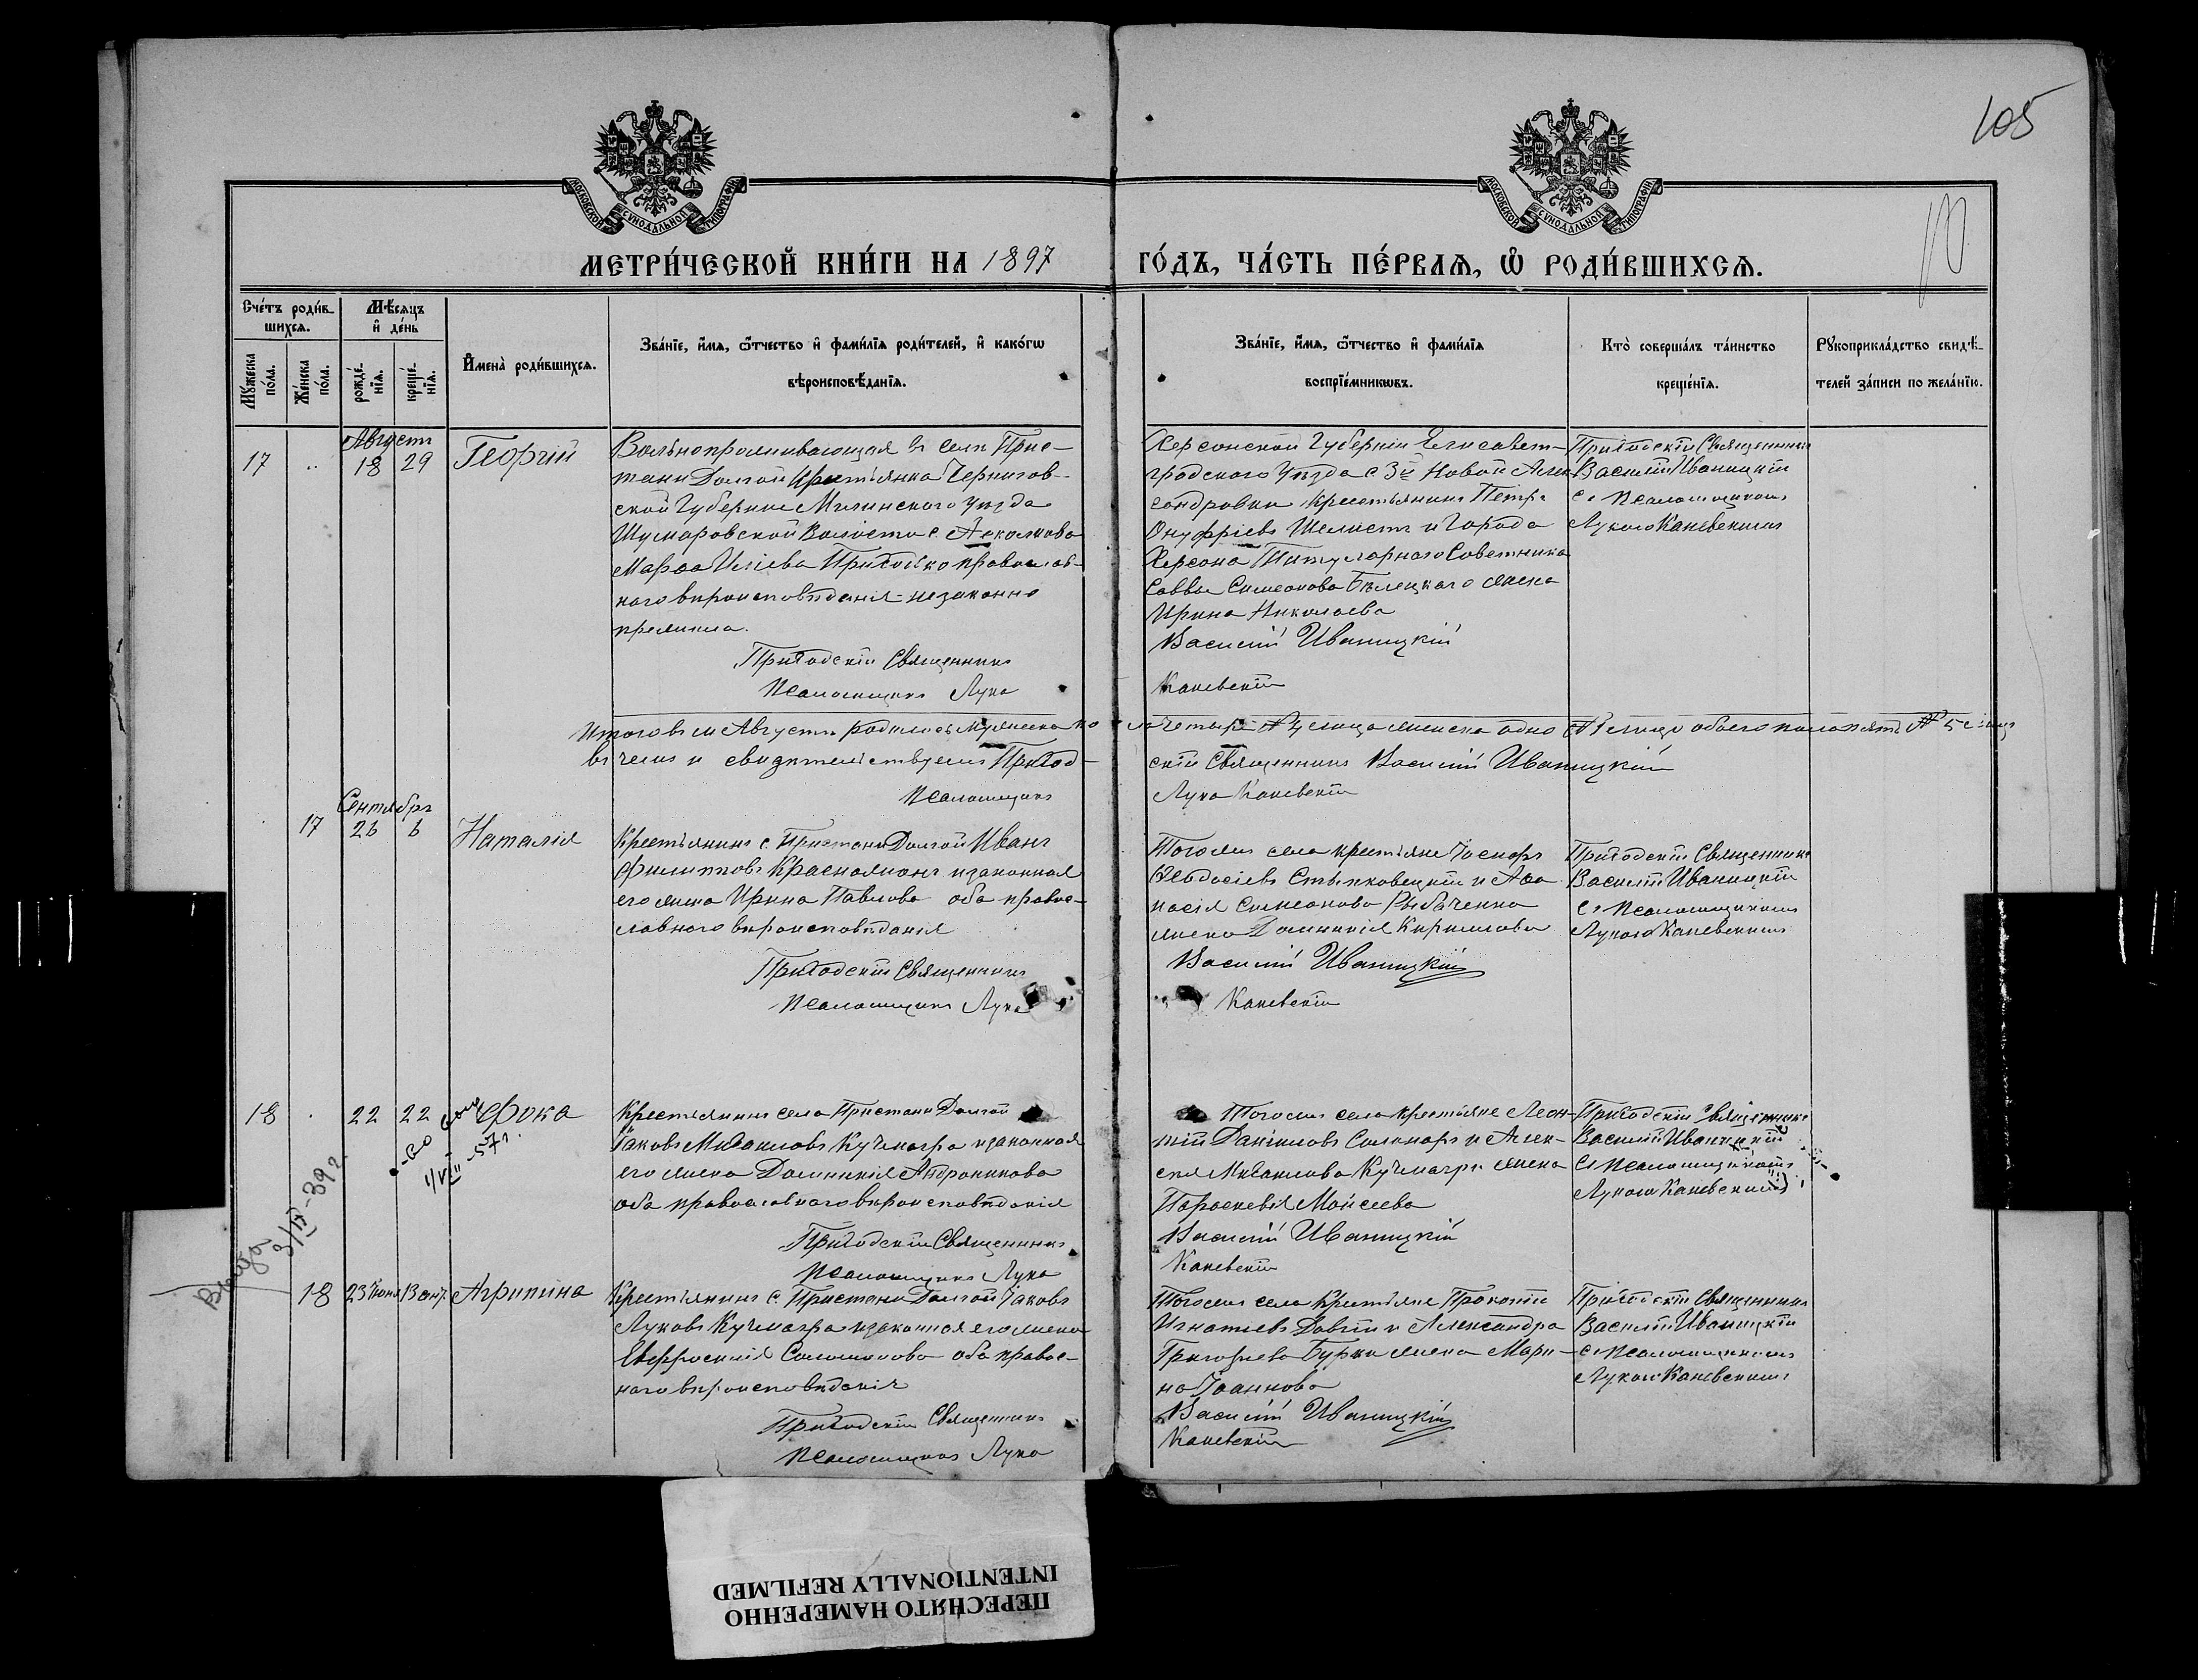 105
МОСКОВСКОЙ СѴНОДАЛЬНОЙ ТИПОГРАФІИ
МОСКОВСКОЙ СѴНОДАЛЬНОЙ ТИПОГРАФІИ
МЕТРИ́ЧЕСКОЙ КНИ́ГИ НА 1897 ГО́ДЪ, ЧА́СТЬ ПЕ́РВАЯ, Ѡ РОДИ́ВШИХСЯ.
Сче́тъ роди́в-
шихся.
Му́жеска по́ла.
Же́нска по́ла.
Мѣ́сяцъ
и де́нь
рожде́-
нїя.
креще́-
нїя.
Имена̀ роди́вшихся.
Зва́нїе, и́мя, ѻ́тчество и фами́лїя роди́телей, и како́гѡ
вѣроисповѣ́данїя.
Зва́нїе, и́мя, ѻ́тчество и фами́лїя
воспрїе́мникѡвъ.
Кто̀ соверша́лъ та́инство
креще́нїя.
Рꙋкоприкла́дство свидѣ́-
телей за́писи по жела́нїю.
Августъ
17 " 18 29 Георгій
Вольнопроживающая въ селѣ Прис-
тани Долгой Крестьянка Чернигов-
ской Губерніи Мглинскаго уѣзда
Шумаровской Волости с.
Марфа Иліева Приходько православ-
наго вѣроисповѣданія незаконно
прижила.
Приходскій Священникъ
Псаломщикъ Лука
Херсонской Губерніи Елисавет-
градскаго уѣзда с 3й Новой Алек
сандровки крестьянинъ Петръ
Онуфріевъ Шелестъ и Города
Херсона Титулярнаго Советника
Саввы Симеонова Бѣлецкаго жена
Ирина Николаева
Василій Иваницкій
Каневскій
Приходскій Священникъ
Василій Иваницкій
съ Псаломщикомъ
Лукою Каневскимъ
Итого въ м Августѣ родилось мужеска по ла четыре № 4 лица женска одно № 1 лице обоего пола пять № 5 лицъ
въ чемъ и свидѣтельствуемъ Приход- скій Священникъ Василій Иваницкій
Псаломщикъ Лука Каневскій
Сентябрь
17 26 6 Наталія
Крестьянинъ с. Пристани Долгой Иванъ
Филипповъ Красножонъ и законная
его жена Ирина Павлова оба правос-
лавнаго вѣроисповѣданія
Приходскій Священникъ
Псаломщикъ Лука
Тогожъ села крестьяне Іосифъ
Ѳеодосіевъ Стъпковецкій и Аѳа
насія Симеонова Рыбаченко
жена Домникія Кириллова
Василій Иваницкій
Каневскій
Приходскій Священникъ
Василій Иваницкій
съ Псаломщикомъ
Лукою Каневскимъ
18 22 22 Фока
1/VIII-57г.
Крестьянинъ села Пристани Долгой
Іаковъ Михаиловъ Кучмагра и законная
его жена Домникія Андроникова
оба православнаго вѣроисповѣданія
Приходскій Священникъ
Псаломщикъ Лука
Тогожъ села крестьяне Леон-
тій Даніиловъ Соломаръ и Алек-
сѣя Михаилова Кучмагры жена
Параскевія Моисеева
Василій Иваницкій
Каневскій
Приходскій Священникъ
Василій Иваницкій
съ Псаломщикомъ
Лукою Каневскимъ
3/IX-39г.
18 23 Іюня 13 сент. Агрипина
Крестьянинъ с. Пристани Долгой Іаковъ
Луковъ Кучмагра и законная его жена
Евфросинія Соломонова оба правос-
наго вѣроисповѣданія
Приходскій Священникъ
Псаломщикъ Лука
Тогожъ села Крестьяне Прокопій
Игнатіевъ Довгій и Александра
Григорьева Бурки жена Мари-
на Іоаннова
Василій Иваницкій
Каневскій
Приходскій Священникъ
Василій Иваницкій
съ Псаломщикомъ
Лукою Каневскимъ
ПЕРЕСНЯТО НАМЕРЕННО
INTENTIONALLY REFILMED